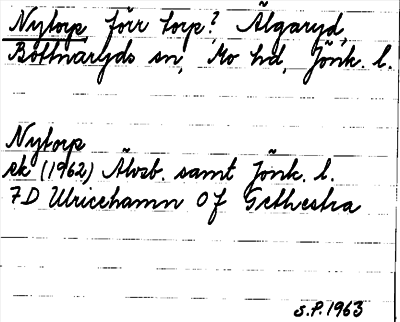 Nytorp, förr torp? Älgaryd,
Bottnaryds sn, Mo hd, Jönk. l.
Nytorp
ek (1962) Älvsb. samt Jönk. l.
7D Ulricehamn 0f Gethestra
S.P. 1963